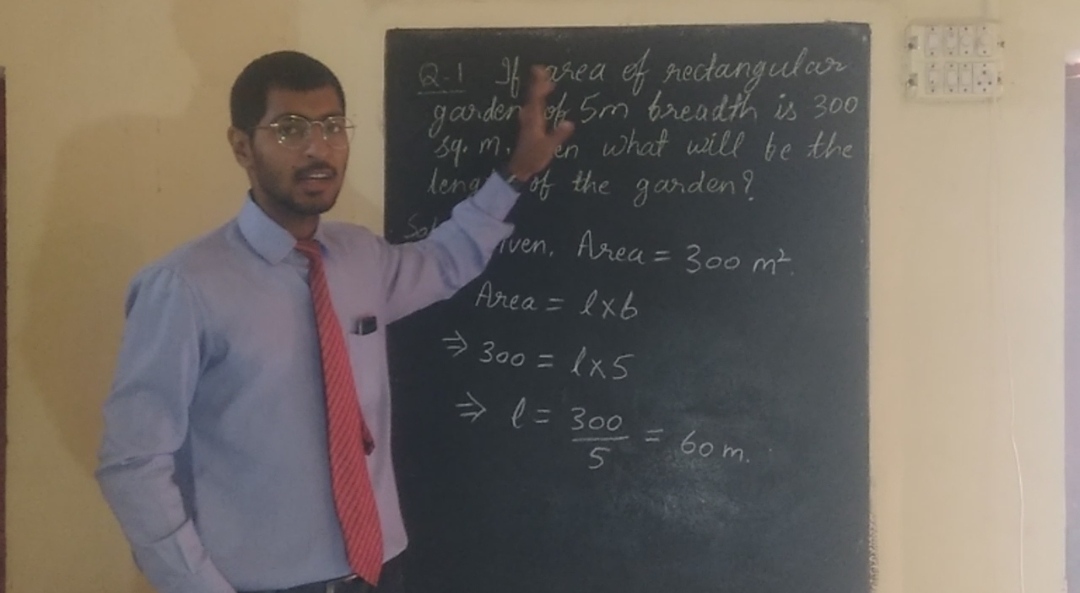 Q-1 If area of rectangular
garden of 5m breadth is 300
sq. m. what will be the
of the garden?
Area = 300 m².
Area = l×b
⇒ 300 = l×5
⇒ l = 300/5 = 60 m.